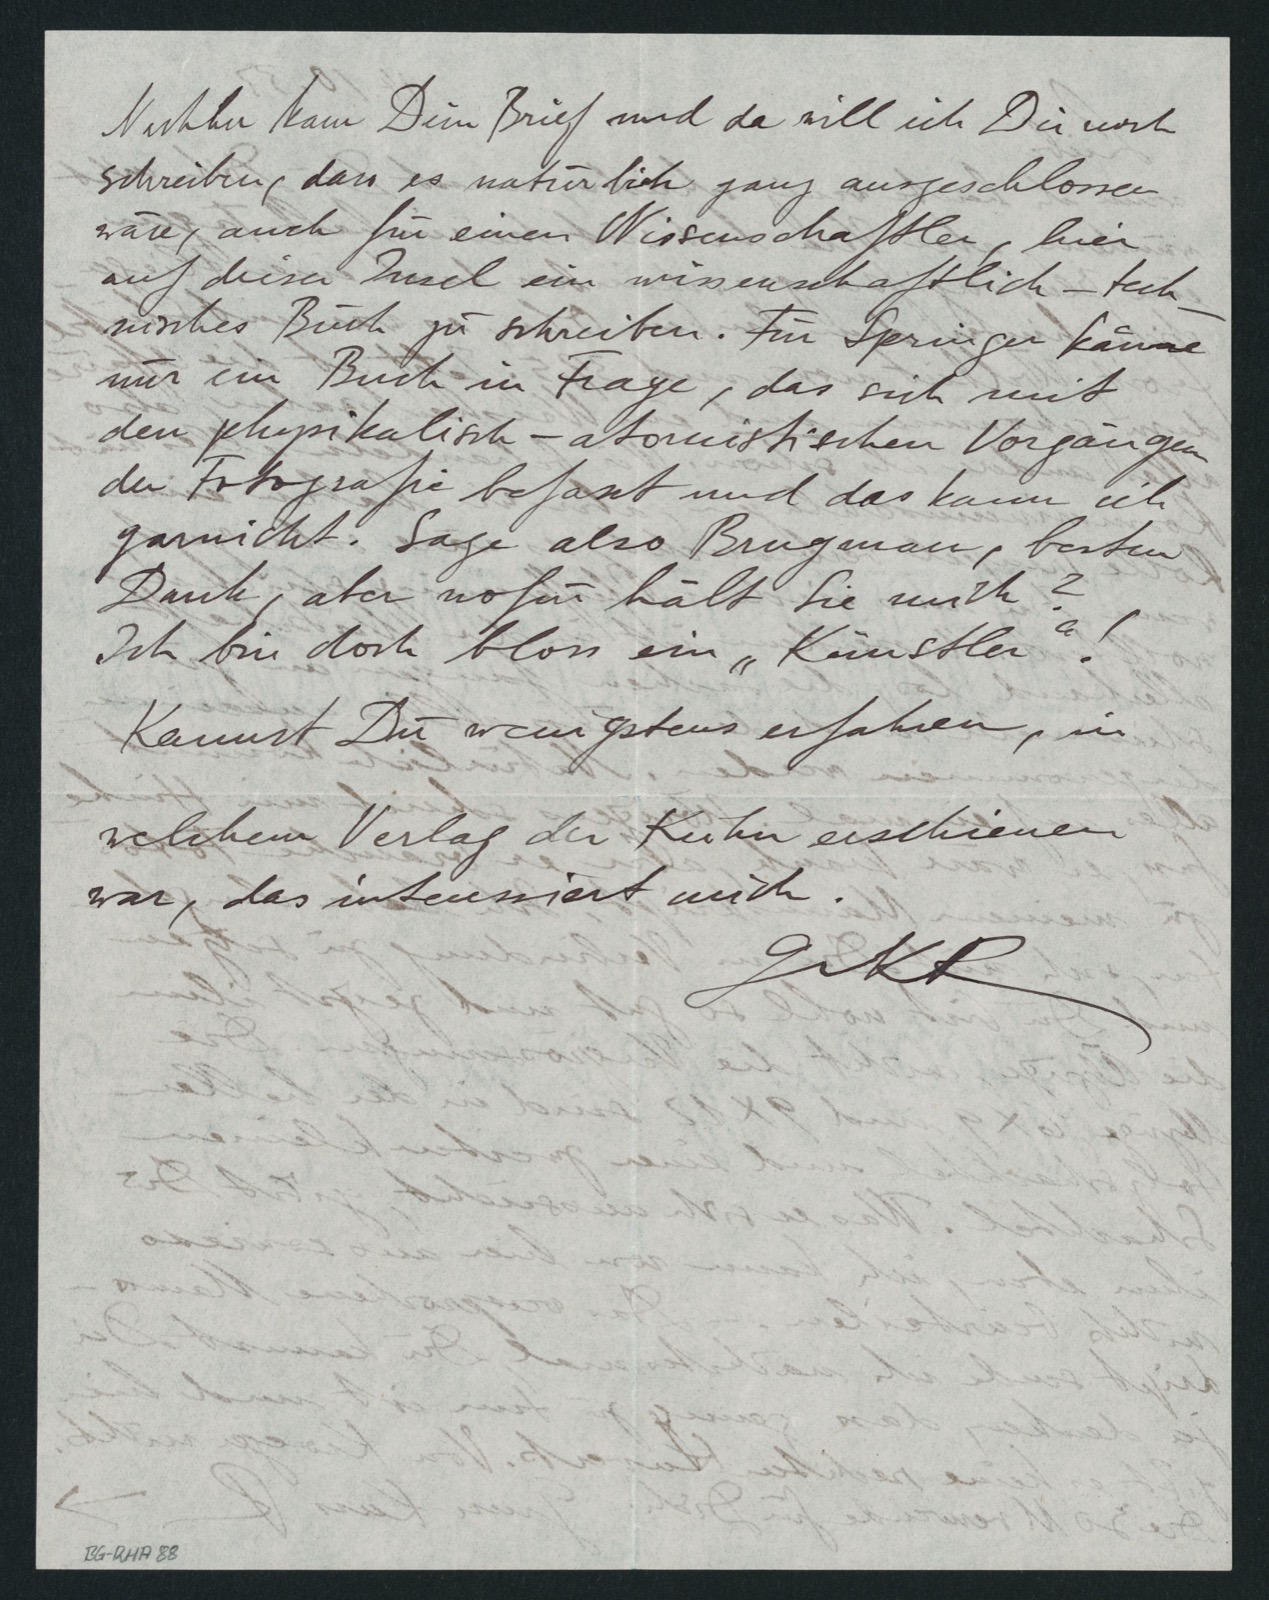 Nachher kam Dein Brief und da will ich Dir noch
schreiben, dass es natürlich ganz ausgeschlossen
wäre, auch für einen Wissenschaftler, hier
auf dieser Insel ein wissenschaftlich – tech-
nisches Buch zu schreiben. Für Springer käme
nur ein Buch in Frage, das sich mit
den physikalisch – atomistischen Vorgängen
der Fotografie befasst und das kann ich
garnicht. Sage also Brugman, besten
Dank, aber wofür hält Sie mich?
Ich bin doch bloss ein „Künstler“!
Kannst Du wenigstens erfahren, in
welchem Verlag der Kuhn erschienen
war, das interessiert mich.
Gr K R
BG-RHA 88